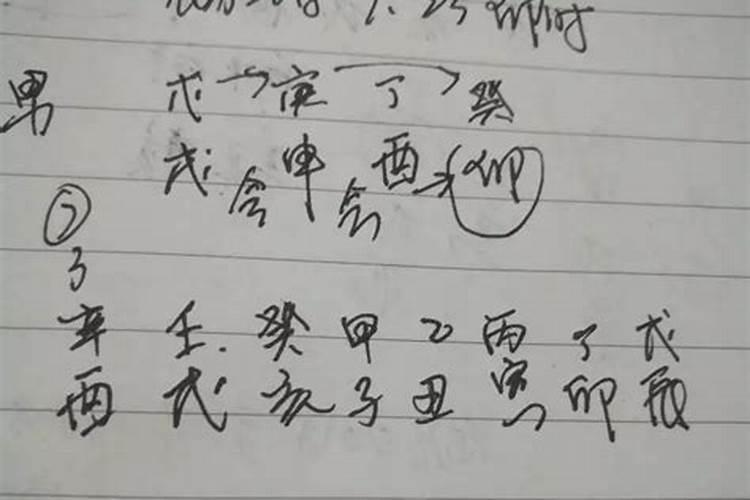 卯时
男 戊 庚 丁 癸
戌 合 申 会 酉 卯
辛 壬 癸 甲 乙 丙 丁 戊
酉 戌 亥 子 丑 寅 卯 辰